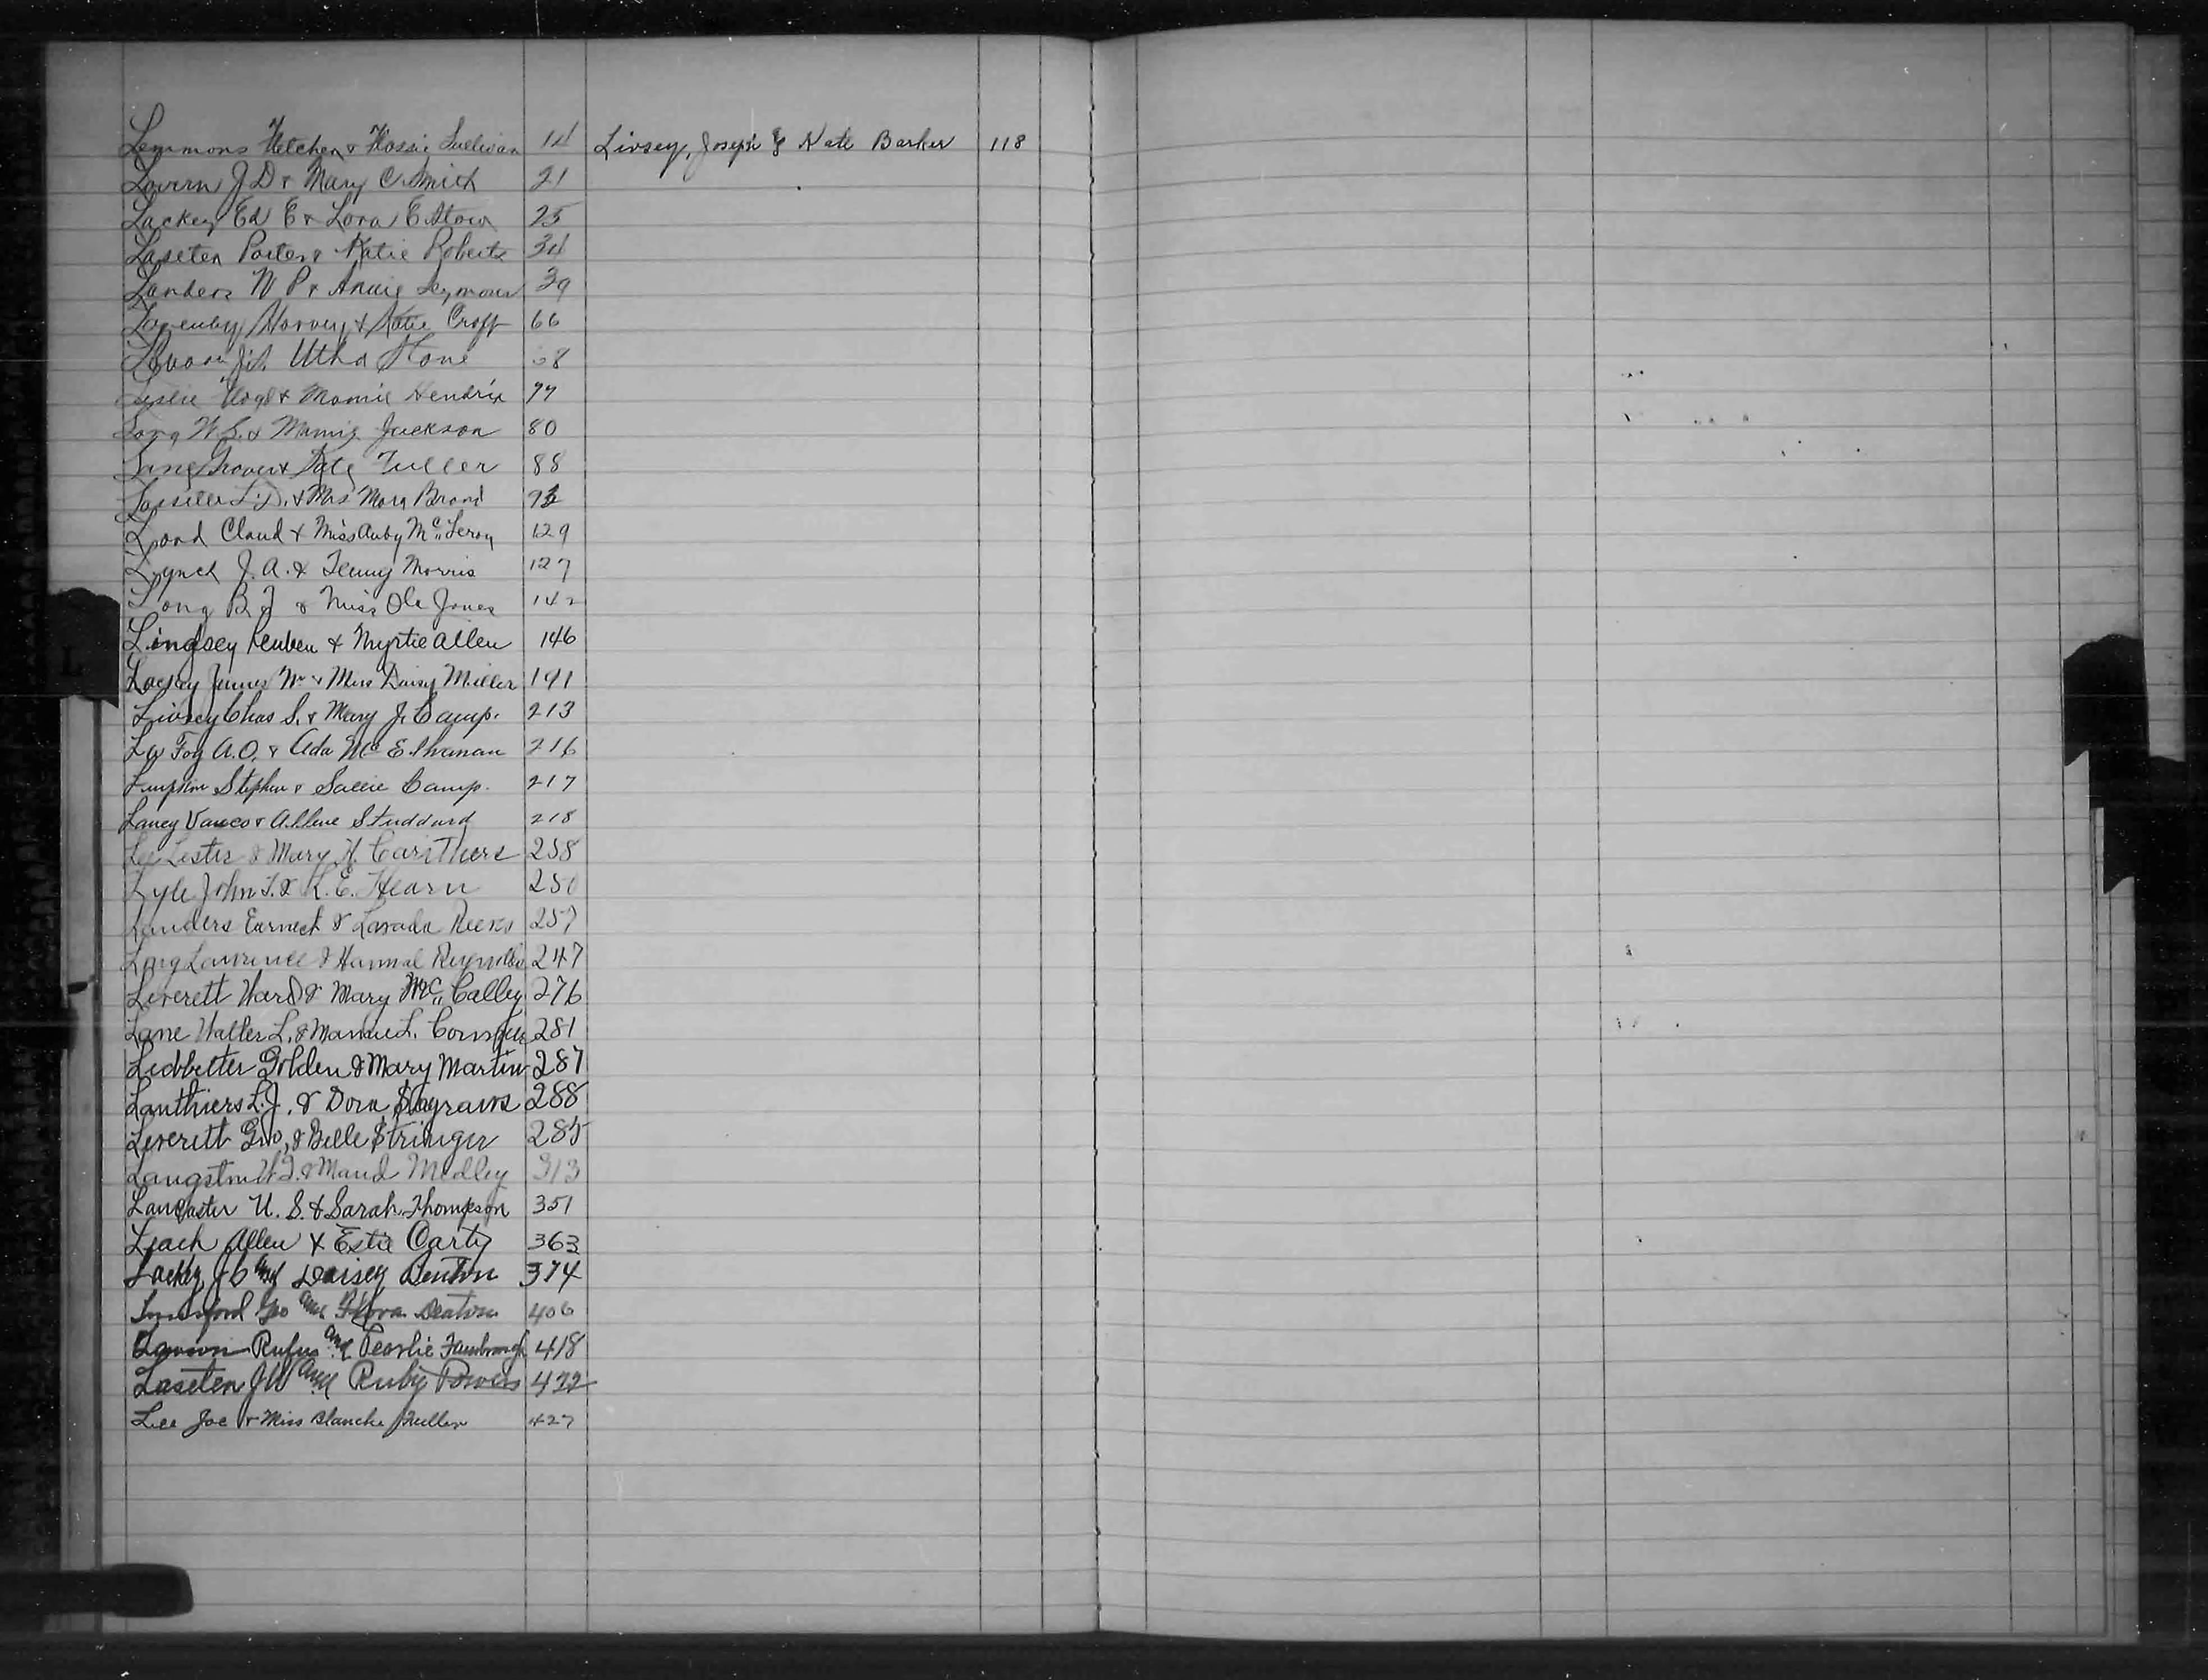 Lemmons Fletcher & Flossie Sullivan 14
Lovern J D & Mary C Smith 21
Lackey Ed E & Lora E Stow 25
Laseter Porter & Katie Roberts 34
Landers W P & Annie Seymour 39
Harvey & Katie Croff 66
Utha Stone
Leslie & Mamie Hendrix 77
Long W. S. & Mamie Jackson 80
Grover & Kate Fuller 88
L. D. & Mrs Mary Brand
Loard Claud & Miss Auby McLeroy 129
Lynch J. A. & Morris 127
Long B J & Miss Ola Jones 142
Lindsey Reuben & Myrtie Allen 146
Lackey James W & Miss Daisy Miller 191
Livsey Chas S. & Mary J. Camp. 213
La Foy A. O. & Ada McElhanan 216
Lumpkin Stephen & Sallie Camp. 217
Laney Vanco & Allene Studdard 218
Lee Lester & Mary H. Carithers 258
Lyle John T. & R. E. Hearn 250
Landers Earnest & Lavada 257
Long Lawrence & Hannah Reynolds 247
Leverett Ward & Mary McCalley 276
Lane Walter L. & Mamie L. 281
Ledbetter Golden & Mary Martin 287
Lanthiers L. J. & Dora 288
Leverett Geo. & Belle Stringer 285
Langston & Maud Medley 313
Lancaster U. S. & Sarah Thompson 351
Leach Allen & Estie Carty 363
Lackey J C and Daisey Benton 374
Lunsford Geo and Flora Deaton 406
Lawson Rufus and Pearlie Fambrough 418
Laseter J W and Ruby Powers 422
Lee Joe & Miss Blanche Fuller 427
Livsey, Joseph & Kate Barker 118
L